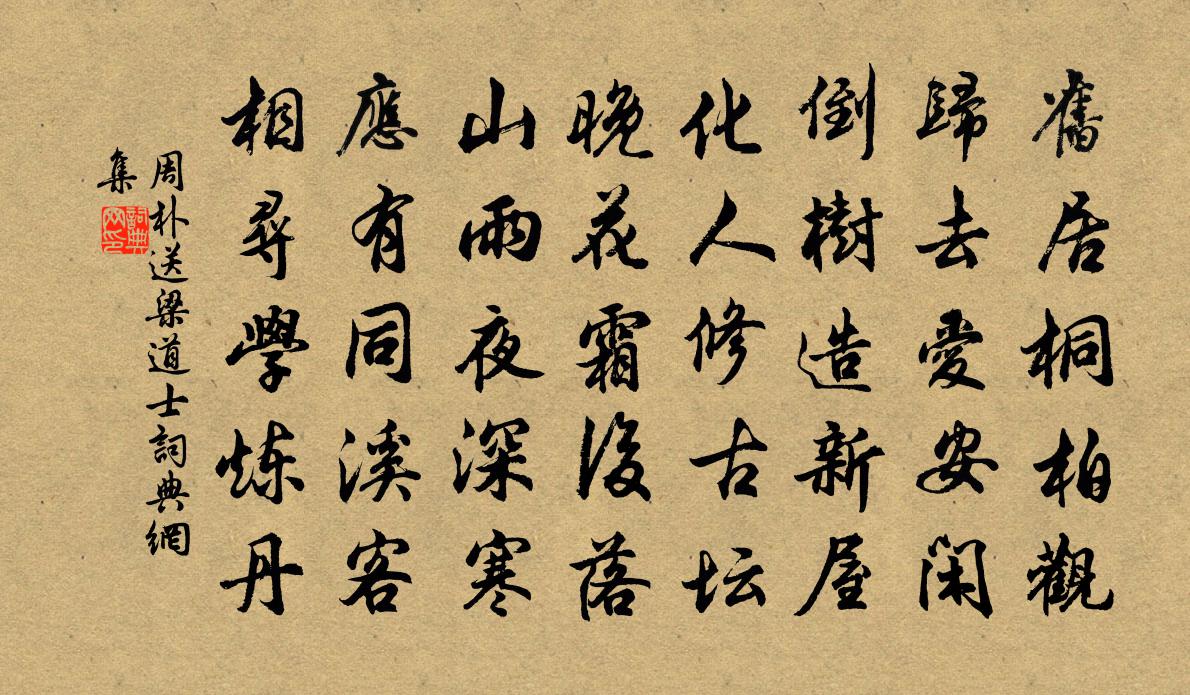 舊居桐柏觀
歸去愛安閑
倒樹造新屋
化人修古坛
晚花霜後落
山雨夜深寒
應有同溪客
相尋學炼丹
周朴送梁道士詞典網
集
詞典網印